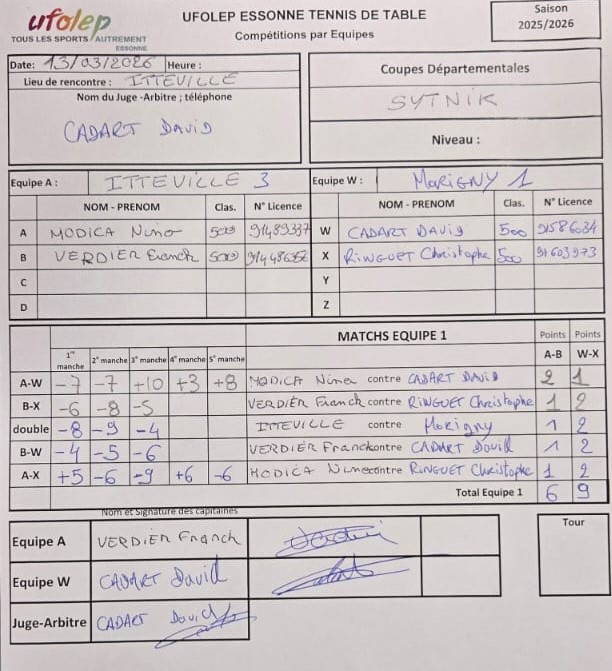 ufolep
TOUS LES SPORTS / AUTREMENT
ESSONNE
UFOLEP ESSONNE TENNIS DE TABLE
Compétitions par Equipes
Saison
2025/2026
Date: 13/03/2026 Heure :
Lieu de rencontre : ITTEVILLE
Nom du Juge -Arbitre ; téléphone
CADART David
Coupes Départementales
SYTNIK
Niveau :
Equipe A : ITTEVILLE 3
NOM - PRENOM Clas. N° Licence
A MODICA Nino 500
B VERDIER Franck 500
C
D
Equipe W : Morigny 1
NOM - PRENOM Clas. N° Licence
W CADART David 500 91586034
X RINGUET Christophe 500 91603973
Y
Z
MATCHS EQUIPE 1 Points Points
1re manche 2e manche 3e manche 4e manche 5e manche A-B W-X
A-W -7 -7 +10 +3 +8 MODICA Nino contre CADART David 2 1
B-X -6 -8 -5 VERDIER Franck contre RINGUET Christophe 1 2
double -8 -9 -4 ITTEVILLE contre Morigny 1 2
B-W -4 -5 -6 VERDIER Franck contre CADART David 1 2
A-X +5 -6 -9 +6 -6 MODICA Nino contre RINGUET Christophe 1 2
Total Equipe 1 6 9
Nom et Signature des capitaines
Equipe A VERDIER Franck
Equipe W CADART David
Juge-Arbitre CADART David
Tour